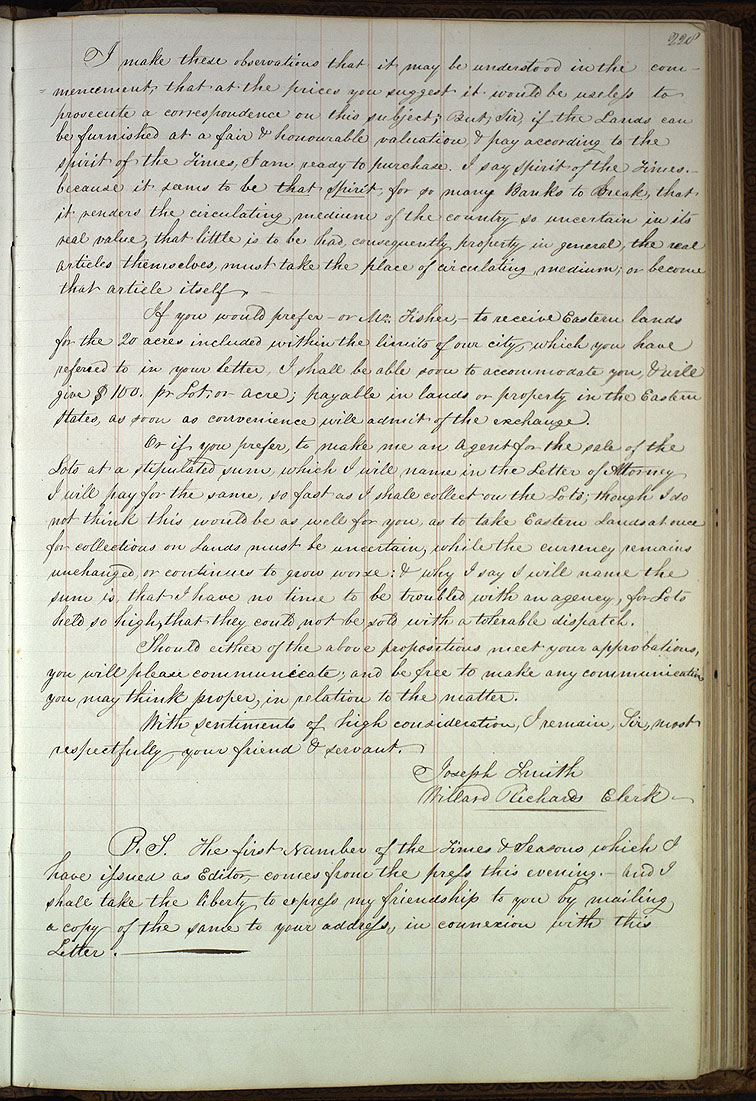 220
I make these observations that it may be understood in the com-
mencement, that at the prices you suggest it would be useless to
prosecute a correspondence on this subject; But, Sir, if the Lands can
be furnished at a fair & honourable valuation, & pay according to the
spirit of the Times, I am ready to purchase. I say spirit of the Times.—
because it seems to be that spirit, for so many Banks to Break, that
it renders the circulating medium of the country so uncertain in its
real value, that little is to be had, consequently property in general, the real
articles themselves, must take the place of circulating medium; or become
that article itself.—
If you would prefer— or Mr. Fisher,— to receive Eastern lands
for the 20 acres included within the limits of our city, which you have
referred to in your letter, I shall be able soon to accommodate you, & will
give $100. pr Lot, or acre; payable in lands or property in the Eastern
States, as soon as convenience will admit of the exchange.
Or if you prefer, to make me an Agent for the sale of the
Lots at a stipulated sum, which I will name in the Letter of Attorney
I will pay for the same, so fast as I shall collect on the Lots; though I do
not think this would be as well for you, as to take Eastern Lands at once
for collections on Lands must be uncertain, while the currency remains
unchanged, or continues to grow worse; & why I say I will name the
sum is, that I have no time to be troubled with an agency, for Lots
held so high, that they could not be sold with a tolerable dispatch.
Should either of the above propositions, meet your approbations,
you will please communicate; and be free to make any communication
you may think proper, in relation to the matter.
With sentiments of high consideration, I remain, Sir, most
respectfully your friend & servant.
Joseph Smith
Willard Richards Clerk—
P.S. The first Number of the Times & Seasons which I
have issued as Editor, comes from the press this evening.— and I
shall take the liberty to express my friendship to you by mailing
a copy of the same to your address, in connexion with this
Letter.